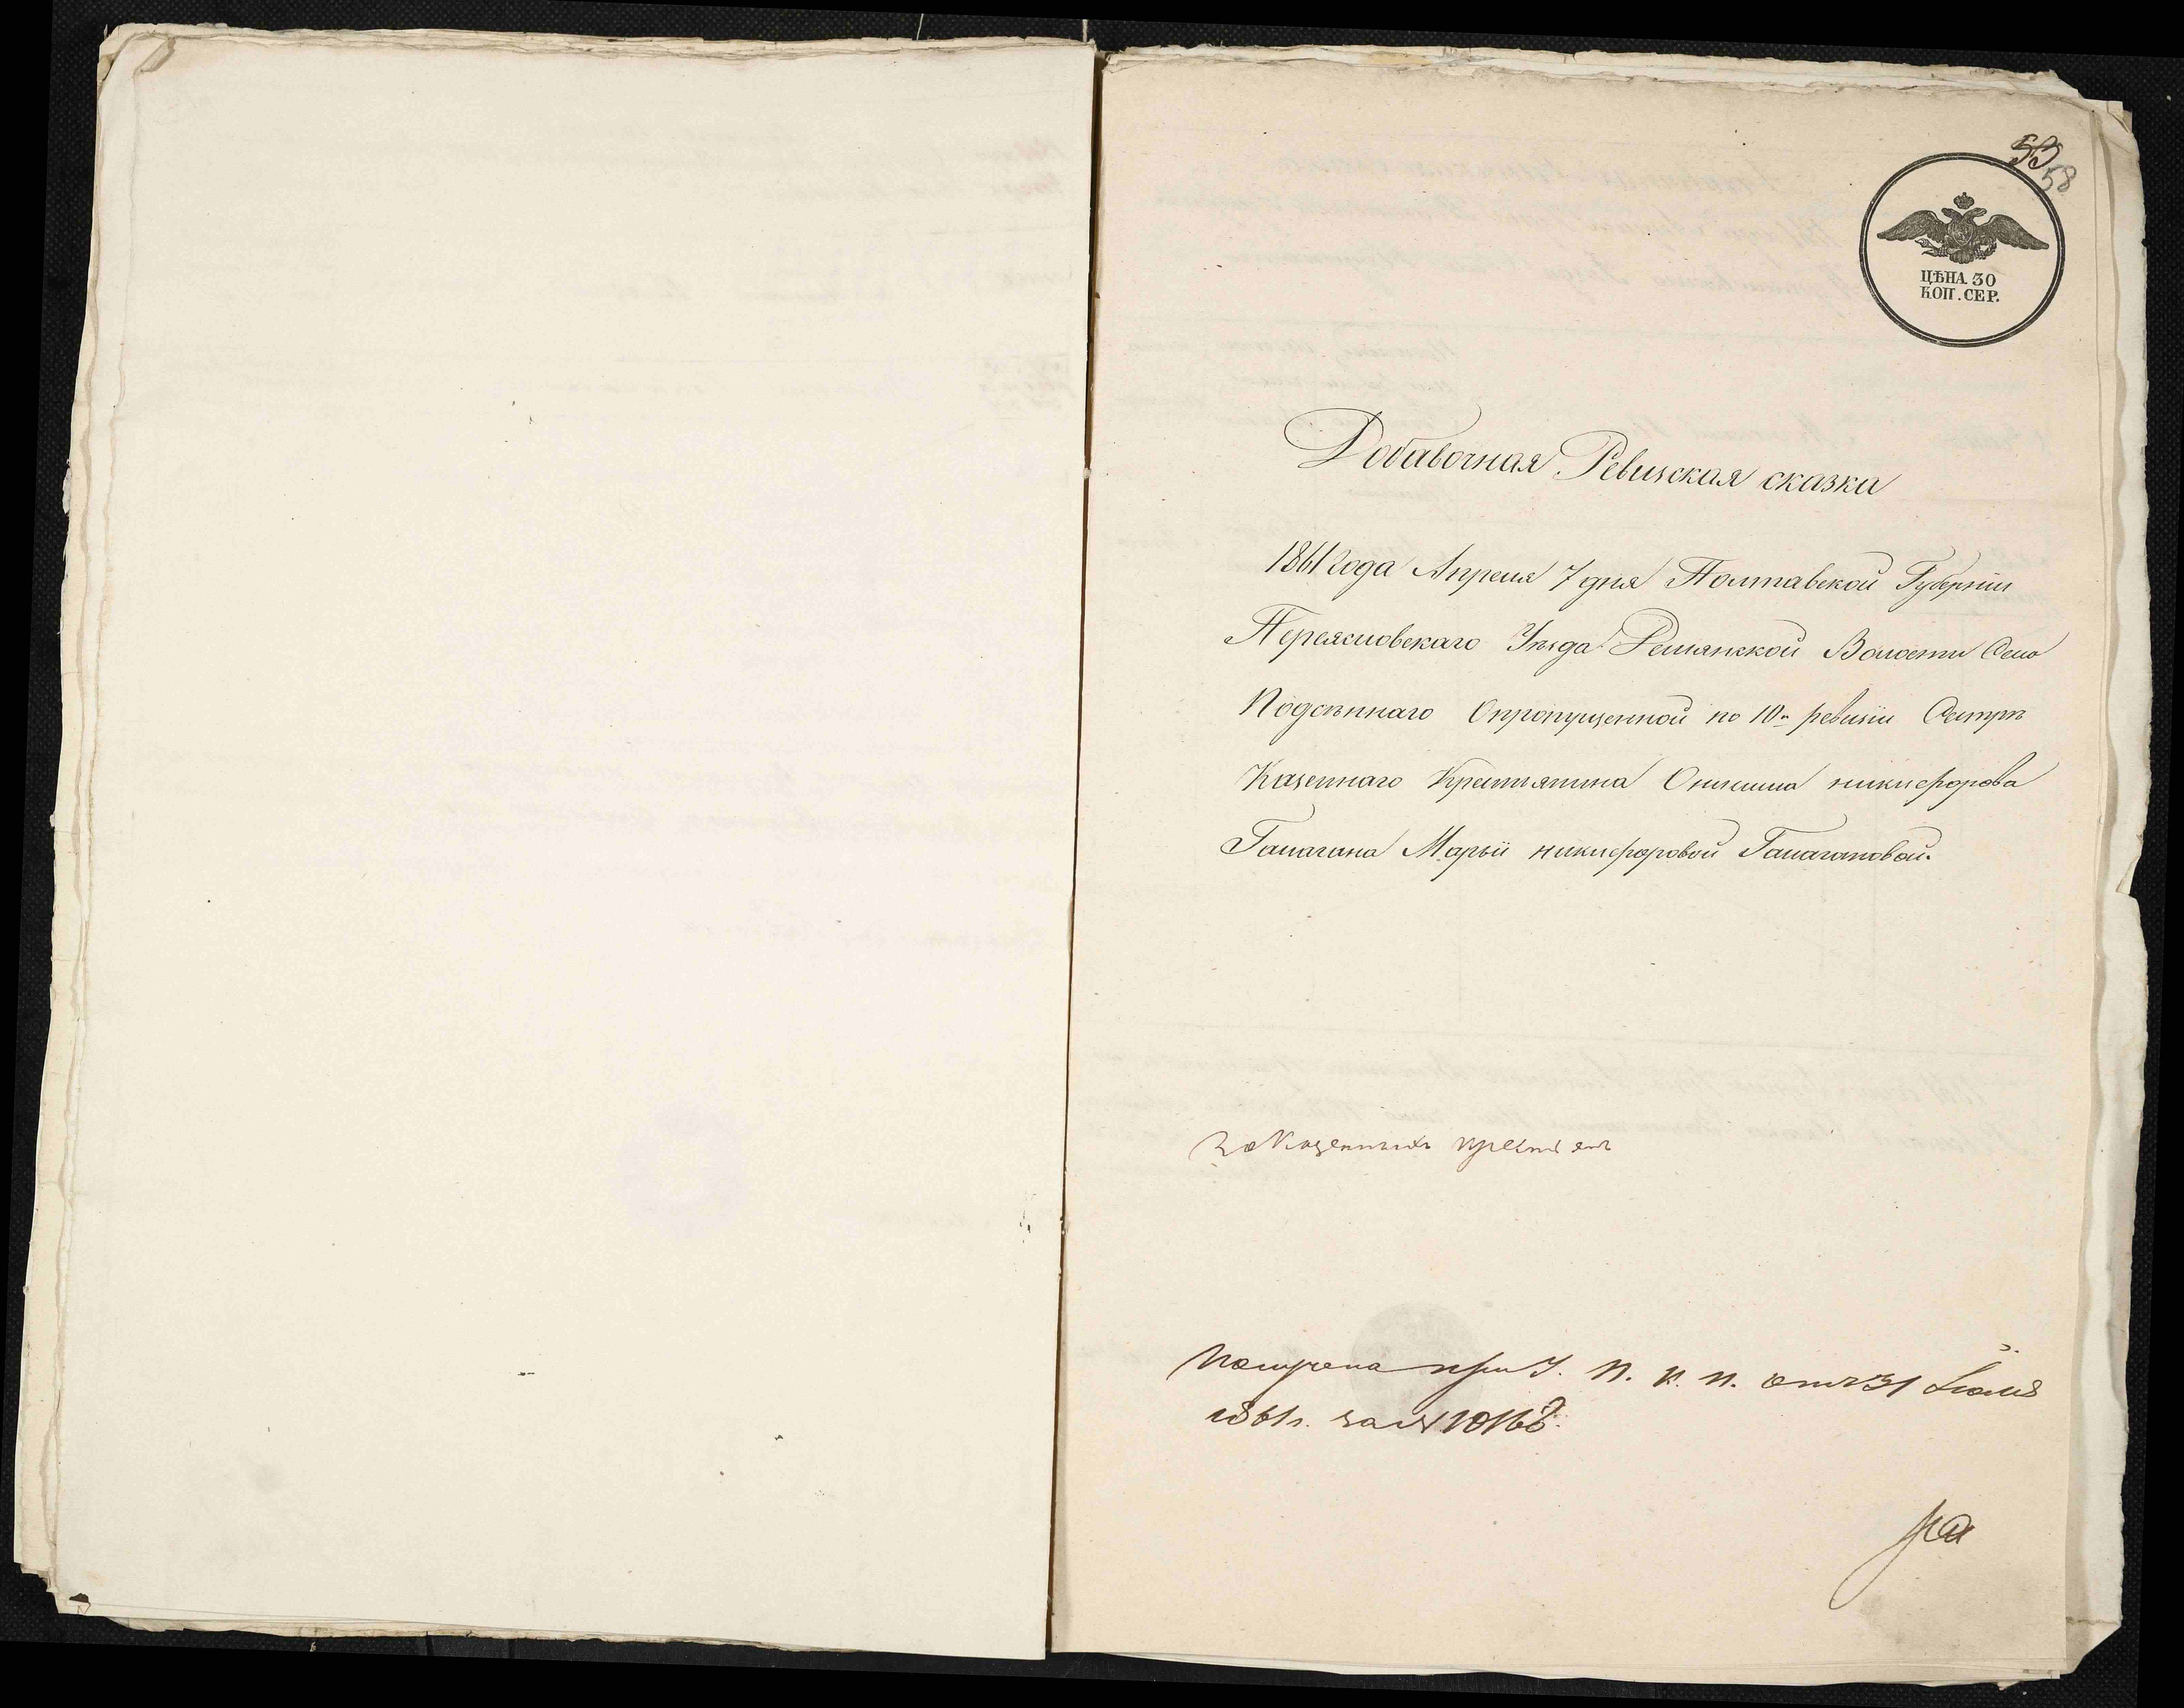 53
58
ЦѢНА 30
КОП. СЕР.
Добавочная Ревизская сказка
1861 года Апреля 7 дня Полтавской Губерніи
Переясловскаго Уѣзда Гемянской Волости Село
Подсѣннаго Опропущенной по 10й ревизіи Сестрѣ
Казеннаго Крестьянина Онисима никифорова
Галагана Марьи никифоровой Галагановой.
Казенныхъ крестьянъ
Получена при У. П. К. П. отъ 31 Іюля
1861 г. за № 10168.